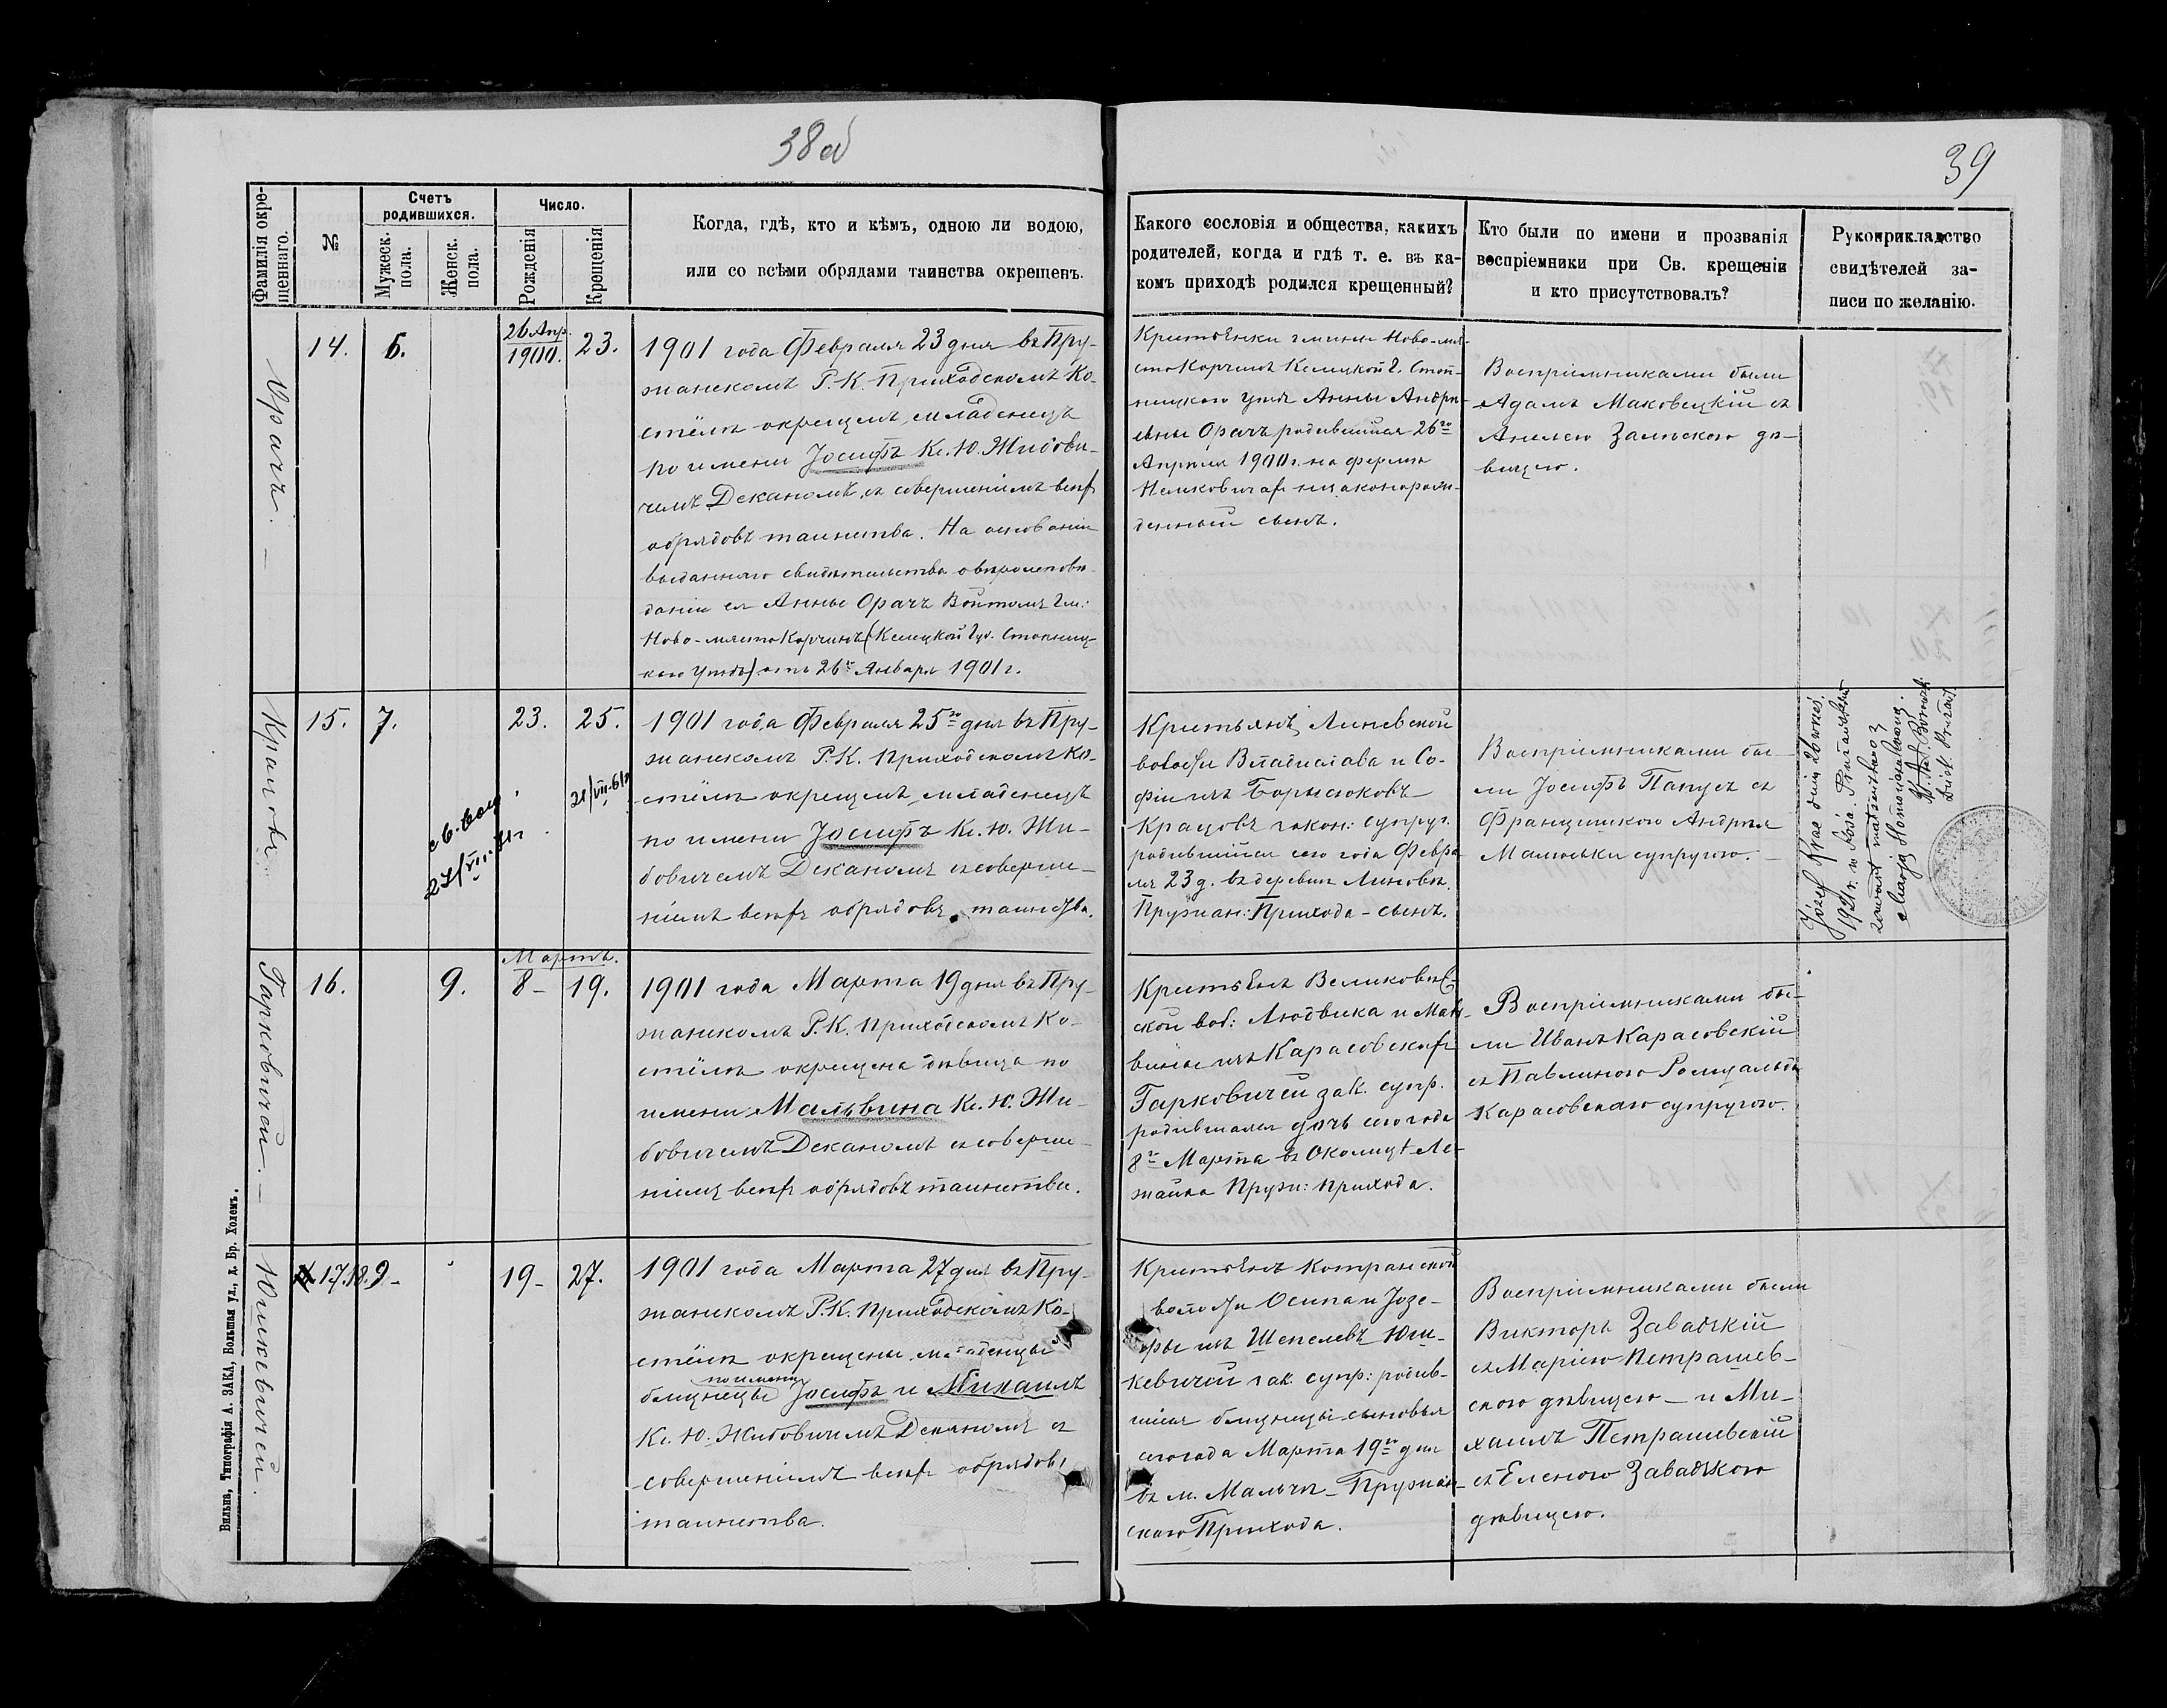 38 об
39
Фамилія окре-
щеннаго.
№
Счетъ
родившихся.
Мужеск.
пола.
Женск.
пола.
Число.
Рожденія
Крещенія
Когда, гдѣ, кто и кѣмъ, одною ли водою,
или со всѣми обрядами таинства окрещенъ.
Какого сословія и общества, какихъ
родителей, когда и гдѣ т. е. въ ка-
комъ приходѣ родился крещенный?
Кто были по имени и прозванія
воспріемники при Св. крещеніи
и кто присутствовалъ?
Рукоприкладство
свидѣтелей за-
писи по желанію.
Орачъ. —
14.
6.
26 Апр.
1900.
23.
1901 года Февраля 23 дня въ Пру-
жанскомъ Р.-К. Приходскомъ Ко-
стёлѣ окрещенъ младенецъ
по имени Іосифъ Кс. Ю. Жидови-
чемъ Деканомъ, съ совершеніемъ всѣхъ
обрядовъ таинства. На основаніи
выданнаго свидѣтельства о вѣроисповѣ-
даніи ея Анны Орачъ Войтомъ Гм:
Ново-мястоКорчинъ (Келецкой Губ. Стопниц-
каго уѣзда) отъ 26го Января 1901 г.
Крестьянки гмины Ново-мя-
стоКорчинъ Келецкой г. Стоп-
ницкаго уѣзда Анны Андре-
евны Орачъ родившійся 26го
Апрѣля 1900 г. на фермѣ
незаконорож-
денный сынъ.
Воспріемниками были
Адамъ Маковецкій съ
Анелею Залѣскою дѣ-
вицею.
Крацовъ.
15.
7.
23.
25.
св. выд.
21/VII.61г
21/VII.61г
1901 года Февраля 25го дня въ Пру-
жанскомъ Р.-К. Приходскомъ Ко-
стёлѣ окрещенъ младенецъ
по имени Іосифъ Кс. Ю. Жи-
довичемъ Деканомъ съ соверше-
ніемъ всѣхъ обрядовъ таинства.
Крестьянъ Линевской
волости Владислава и Со-
фіи изъ Борисюковъ
Крацовъ закон: супруг.
родившійся сего года Февра-
ля 23 д. въ деревнѣ Линовѣ.
Пружан: Прихода – сынъ.
Воспріемниками бы-
ли Іосифъ Панусъ съ
Францишкою Андрея
супругою. —
Józef Krac dnia 26 wrześ.
1921 r. w kość.
zawarł małżeństwo z
Гарковичей. —
16.
9.
Мартъ.
8 –
19.
1901 года Марта 19 дня въ Пру-
жанскомъ Р.К. Приходскомъ Ко-
стёлѣ окрещена дѣвица по
имени Мальвина Кс. Ю. Жи-
довичемъ Деканомъ съ соверше-
ніемъ всѣхъ обрядовъ таинства.
Крестьянъ Великовесь-
ской вол: Людвика и Маль-
вины изъ Карасовскихъ
Гарковичей зак. супр.
родившаяся дочь сего года
8го Марта въ Околицѣ Ле-
жайка Пруж: прихода.
Воспріемниками бы-
ли Иванъ Карасовскій
съ Павлиною Ромуальда
Карасовскаго супругою.
Юшкевичей.
17.18.
9 –
19 –
27.
1901 года Марта 27 дня въ Пру-
жанскомъ Р.К. Приходскомъ Ко-
стёлѣ окрещены младенцы
близнецы по имени Іосифъ и Михаилъ
Кс. Ю. Жидовичемъ Деканомъ съ
совершеніемъ всѣхъ обрядовъ
таинства.
Крестьянъ Котранской
волости Осипа и Юзе-
фы изъ Шепелевъ Юш-
кевичей зак. супр: родив-
шіеся близнецы сыновья
сего года Марта 19го дня
въ м. Мальчи – Пружан-
скаго Прихода.
Воспріемниками были
Викторъ Завадзкій
съ Маріею Петрашев-
скою дѣвицею – и Ми-
хаилъ Петрашевскій
съ Еленою Завадзкою
дѣвицею.
Вильна, Типографія А. ЗАКА, Большая ул., д. Бр. Холемъ.